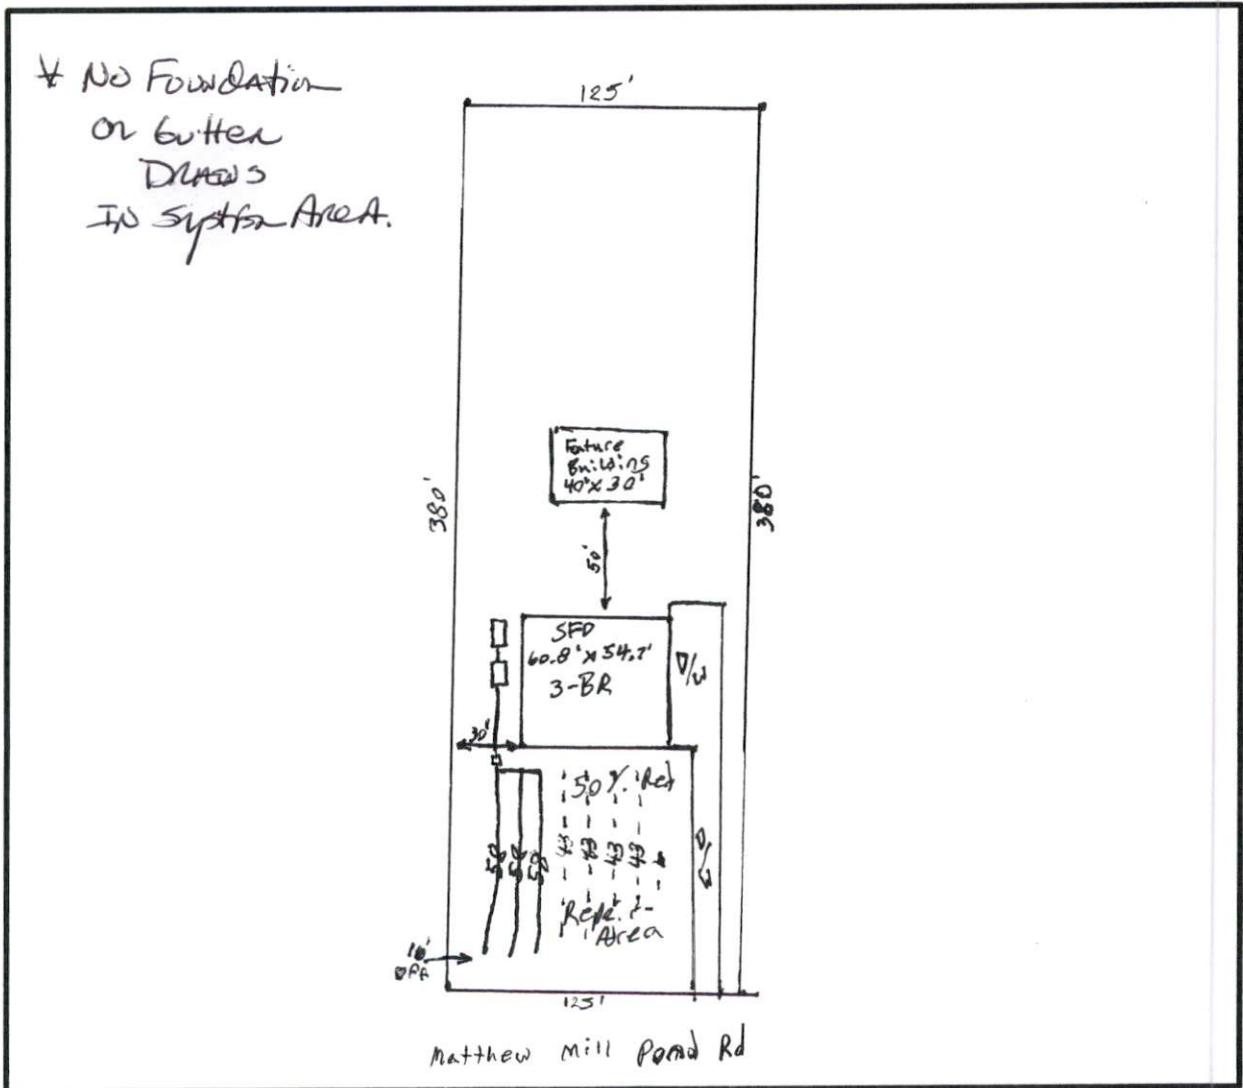 * No Foundation
or Gutter
Drains
In System Area.
125'
Future
Building
40'x30'
380'
380'
50'
SFD
60.8'x54.7'
3-BR
D/W
30'
50% Red
50 50 50 43 43 43 43
D/W
Repair
Area
10'
OFF
125'
Matthew Mill Pond Rd